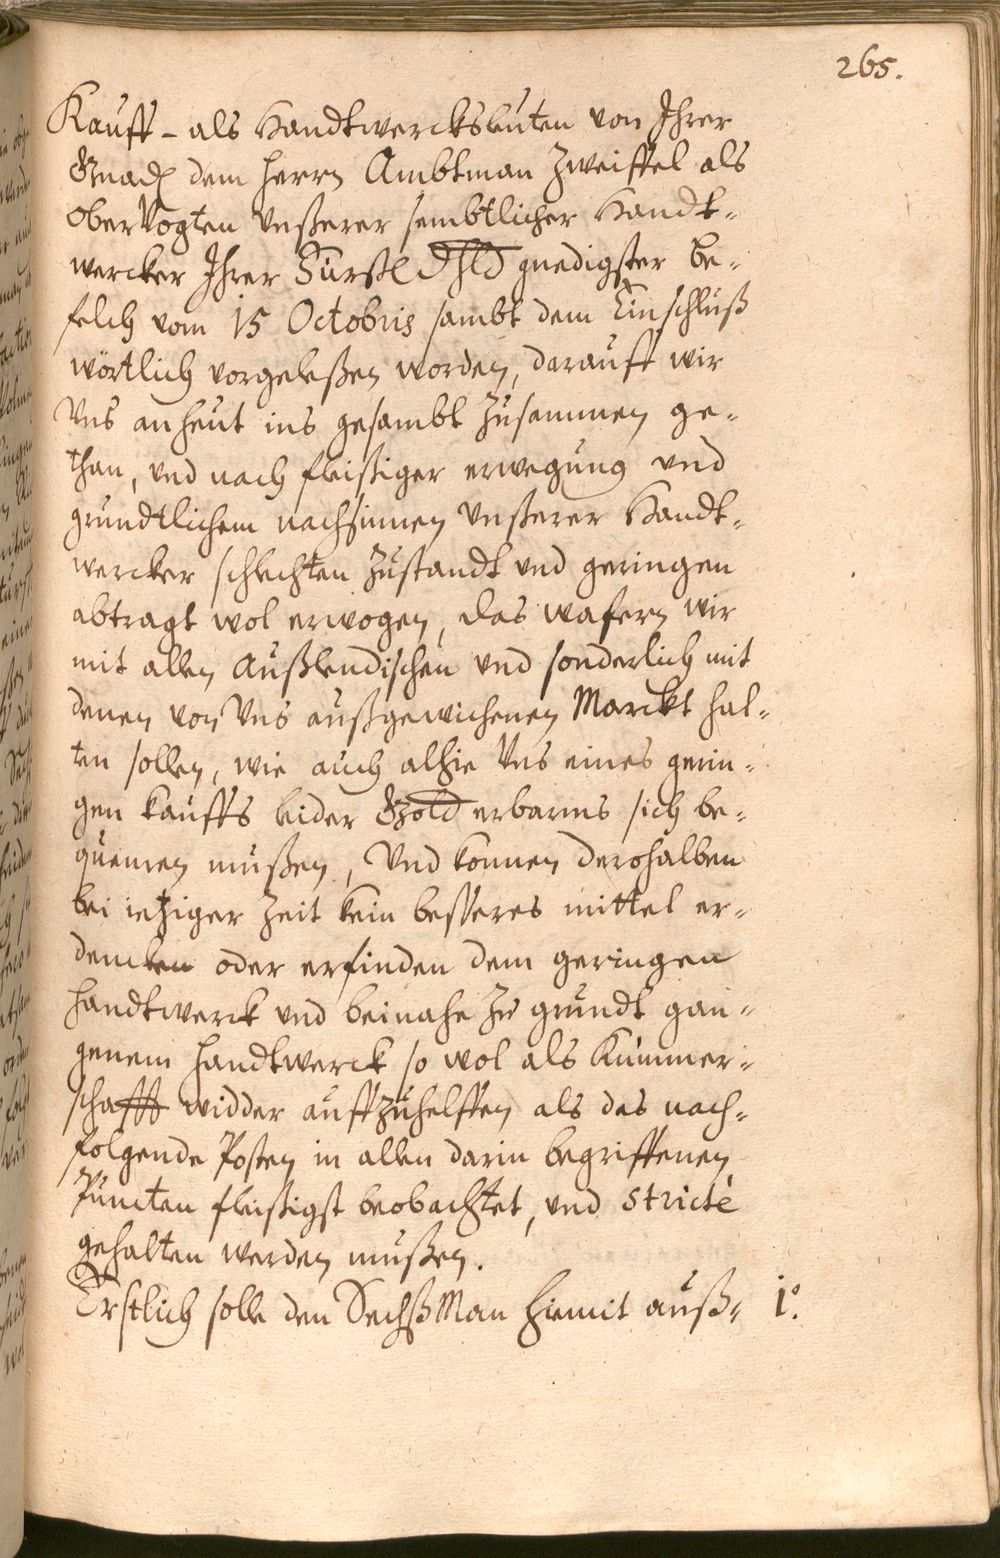 265.
Kauff- als Handtwercksleuten von Ihrer
Gnad. dem Herrn Ambtman Zweiffel als
Ober Vogten Unßerer sembtlicher Handt=
wercker Ihrer Fürstl Dhld gnedigster be=
felch vom 15 Octobris sambt dem Einschluß
wörtlich vorgeleßen worden, darauff wir
Uns anheut ins gesambt zusammen ge=
than, und nach fleißiger erwegung und
grundtlichem nachsinnen Unßerer Handt=
wercker schlechten Zustandt und geringen
abtragt wol erwogen, das wafern wir
mit allen Außlendischen und sonderlich mit
denen von Uns außgewichenen Marckt hal=
ten sollen, wie auch alhie Uns eines gerin=
gen kauffs leider Gott erbarms sich be=
quemen mußen, Und konnen derohalben
bei ietziger Zeit kein besseres mittel er=
dencken oder erfinden dem geringen
Handtwerck und beinahe zu grundt gan=
genem Handtwerck so wol als Kummer=
schafft widder auffzuhelffen als das nach=
folgende Posten in allen darin begriffenen
Puncten fleißigst beobachtet, und stricté
gehalten werden mußen.
Erstlich solle den SechßMan hiemit auß= 1º.